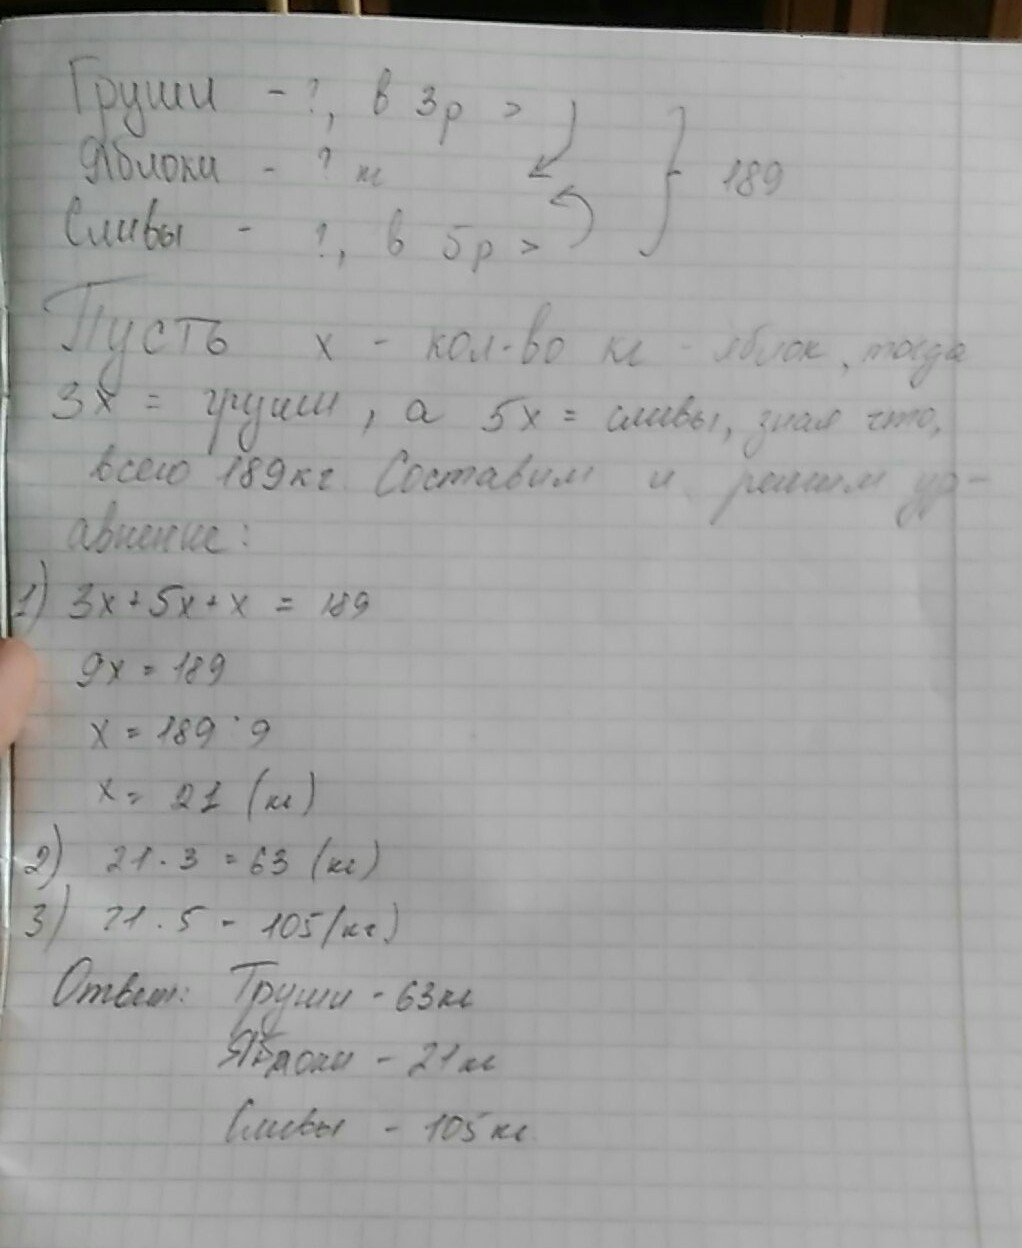 Груши - ?, в 3р >
Яблоки - ? кг } 189
Сливы - ?, в 5р >
Пусть х - кол-во кг - яблок, тогда
3х = груши, а 5х = сливы, зная что,
всего 189кг. Составим и решим ур-
авнение:
1) 3х + 5х + х = 189
9х = 189
х = 189 : 9
х = 21 (кг)
2) 21 · 3 = 63 (кг)
3) 21 · 5 - 105 (кг)
Ответ: Груши - 63кг
Яблоки - 21кг
Сливы - 105кг